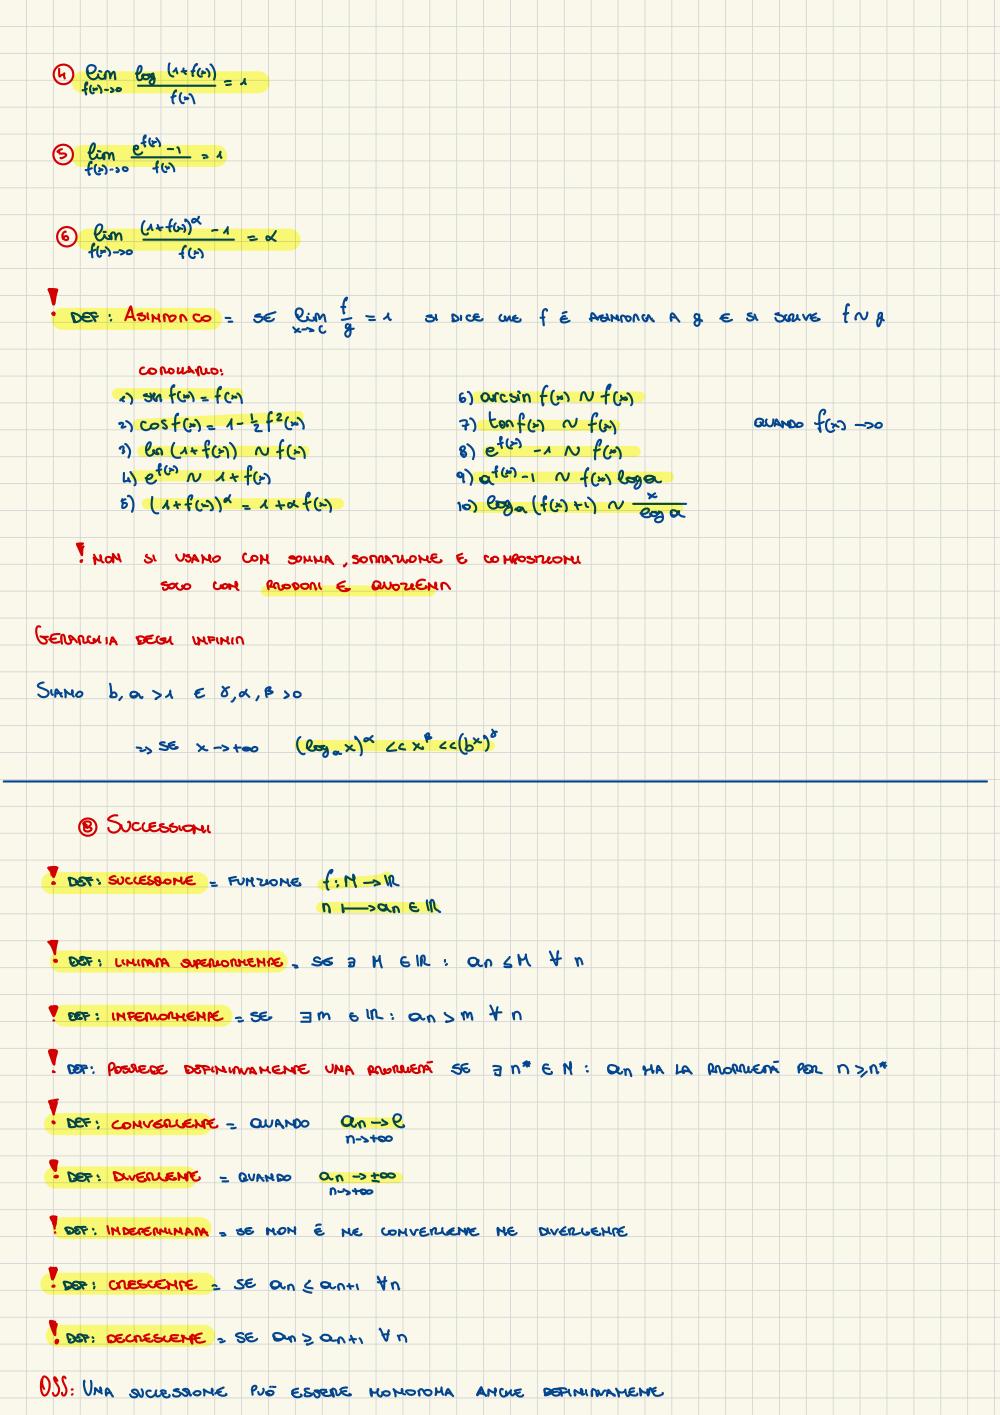 ④ lim f(x)->0 log (1+f(x)) / f(x) = 1
⑤ lim f(x)->0 e^f(x) -1 / f(x) = 1
⑥ lim f(x)->0 (1+f(x))^α -1 / f(x) = α
! DEF: ASINTOTICO = SE lim x->c f/g = 1 SI DICE CHE f È ASINTOTICA A g E SI SCRIVE f ~ g
COROLLARIO:
1) sen f(x) = f(x)
2) cos f(x) = 1 - 1/2 f²(x)
3) ln (1+f(x)) ~ f(x)
4) e^f(x) ~ 1+f(x)
5) (1+f(x))^α = 1+α f(x)
6) arcsin f(x) ~ f(x)
7) tan f(x) ~ f(x)
8) e^f(x) -1 ~ f(x)
9) a^f(x) -1 ~ f(x) log a
10) log_a (f(x)+1) ~ x / log a
QUANDO f(x) ->0
! NON SI USANO CON SOMMA, SOTTRAZIONE E COMPOSIZIONI
SOLO CON PRODOTTI E QUOZIENTI
GERARCHIA DEGLI INFINITI
SIANO b, a >1 E γ, α, β >0
=> SE x -> +∞ (log_a x)^α << x^β << (b^x)^γ
⑧ SUCCESSIONI
! DEF: SUCCESSIONE = FUNZIONE f: N -> IR
n |-> an ∈ IR
! DEF: LIMITATA SUPERIORMENTE = SE ∃ M ∈ IR : an ≤ M ∀ n
! DEF: INFERIORMENTE = SE ∃ m ∈ IR : an > m ∀ n
! DEF: POSSIEDE DEFINITIVAMENTE UNA PROPRIETÀ SE ∃ n* ∈ N : an HA LA PROPRIETÀ PER n ≥ n*
! DEF: CONVERGENTE = QUANDO an -> l
n->+∞
! DEF: DIVERGENTE = QUANDO an -> ±∞
n->+∞
! DEF: INDETERMINATA = SE NON È NE CONVERGENTE NE DIVERGENTE
! DEF: CRESCENTE = SE an ≤ an+1 ∀n
! DEF: DECRESCENTE = SE an ≥ an+1 ∀ n
OSS: UNA SUCCESSIONE PUÒ ESSERE MONOTONA ANCHE DEFINITIVAMENTE